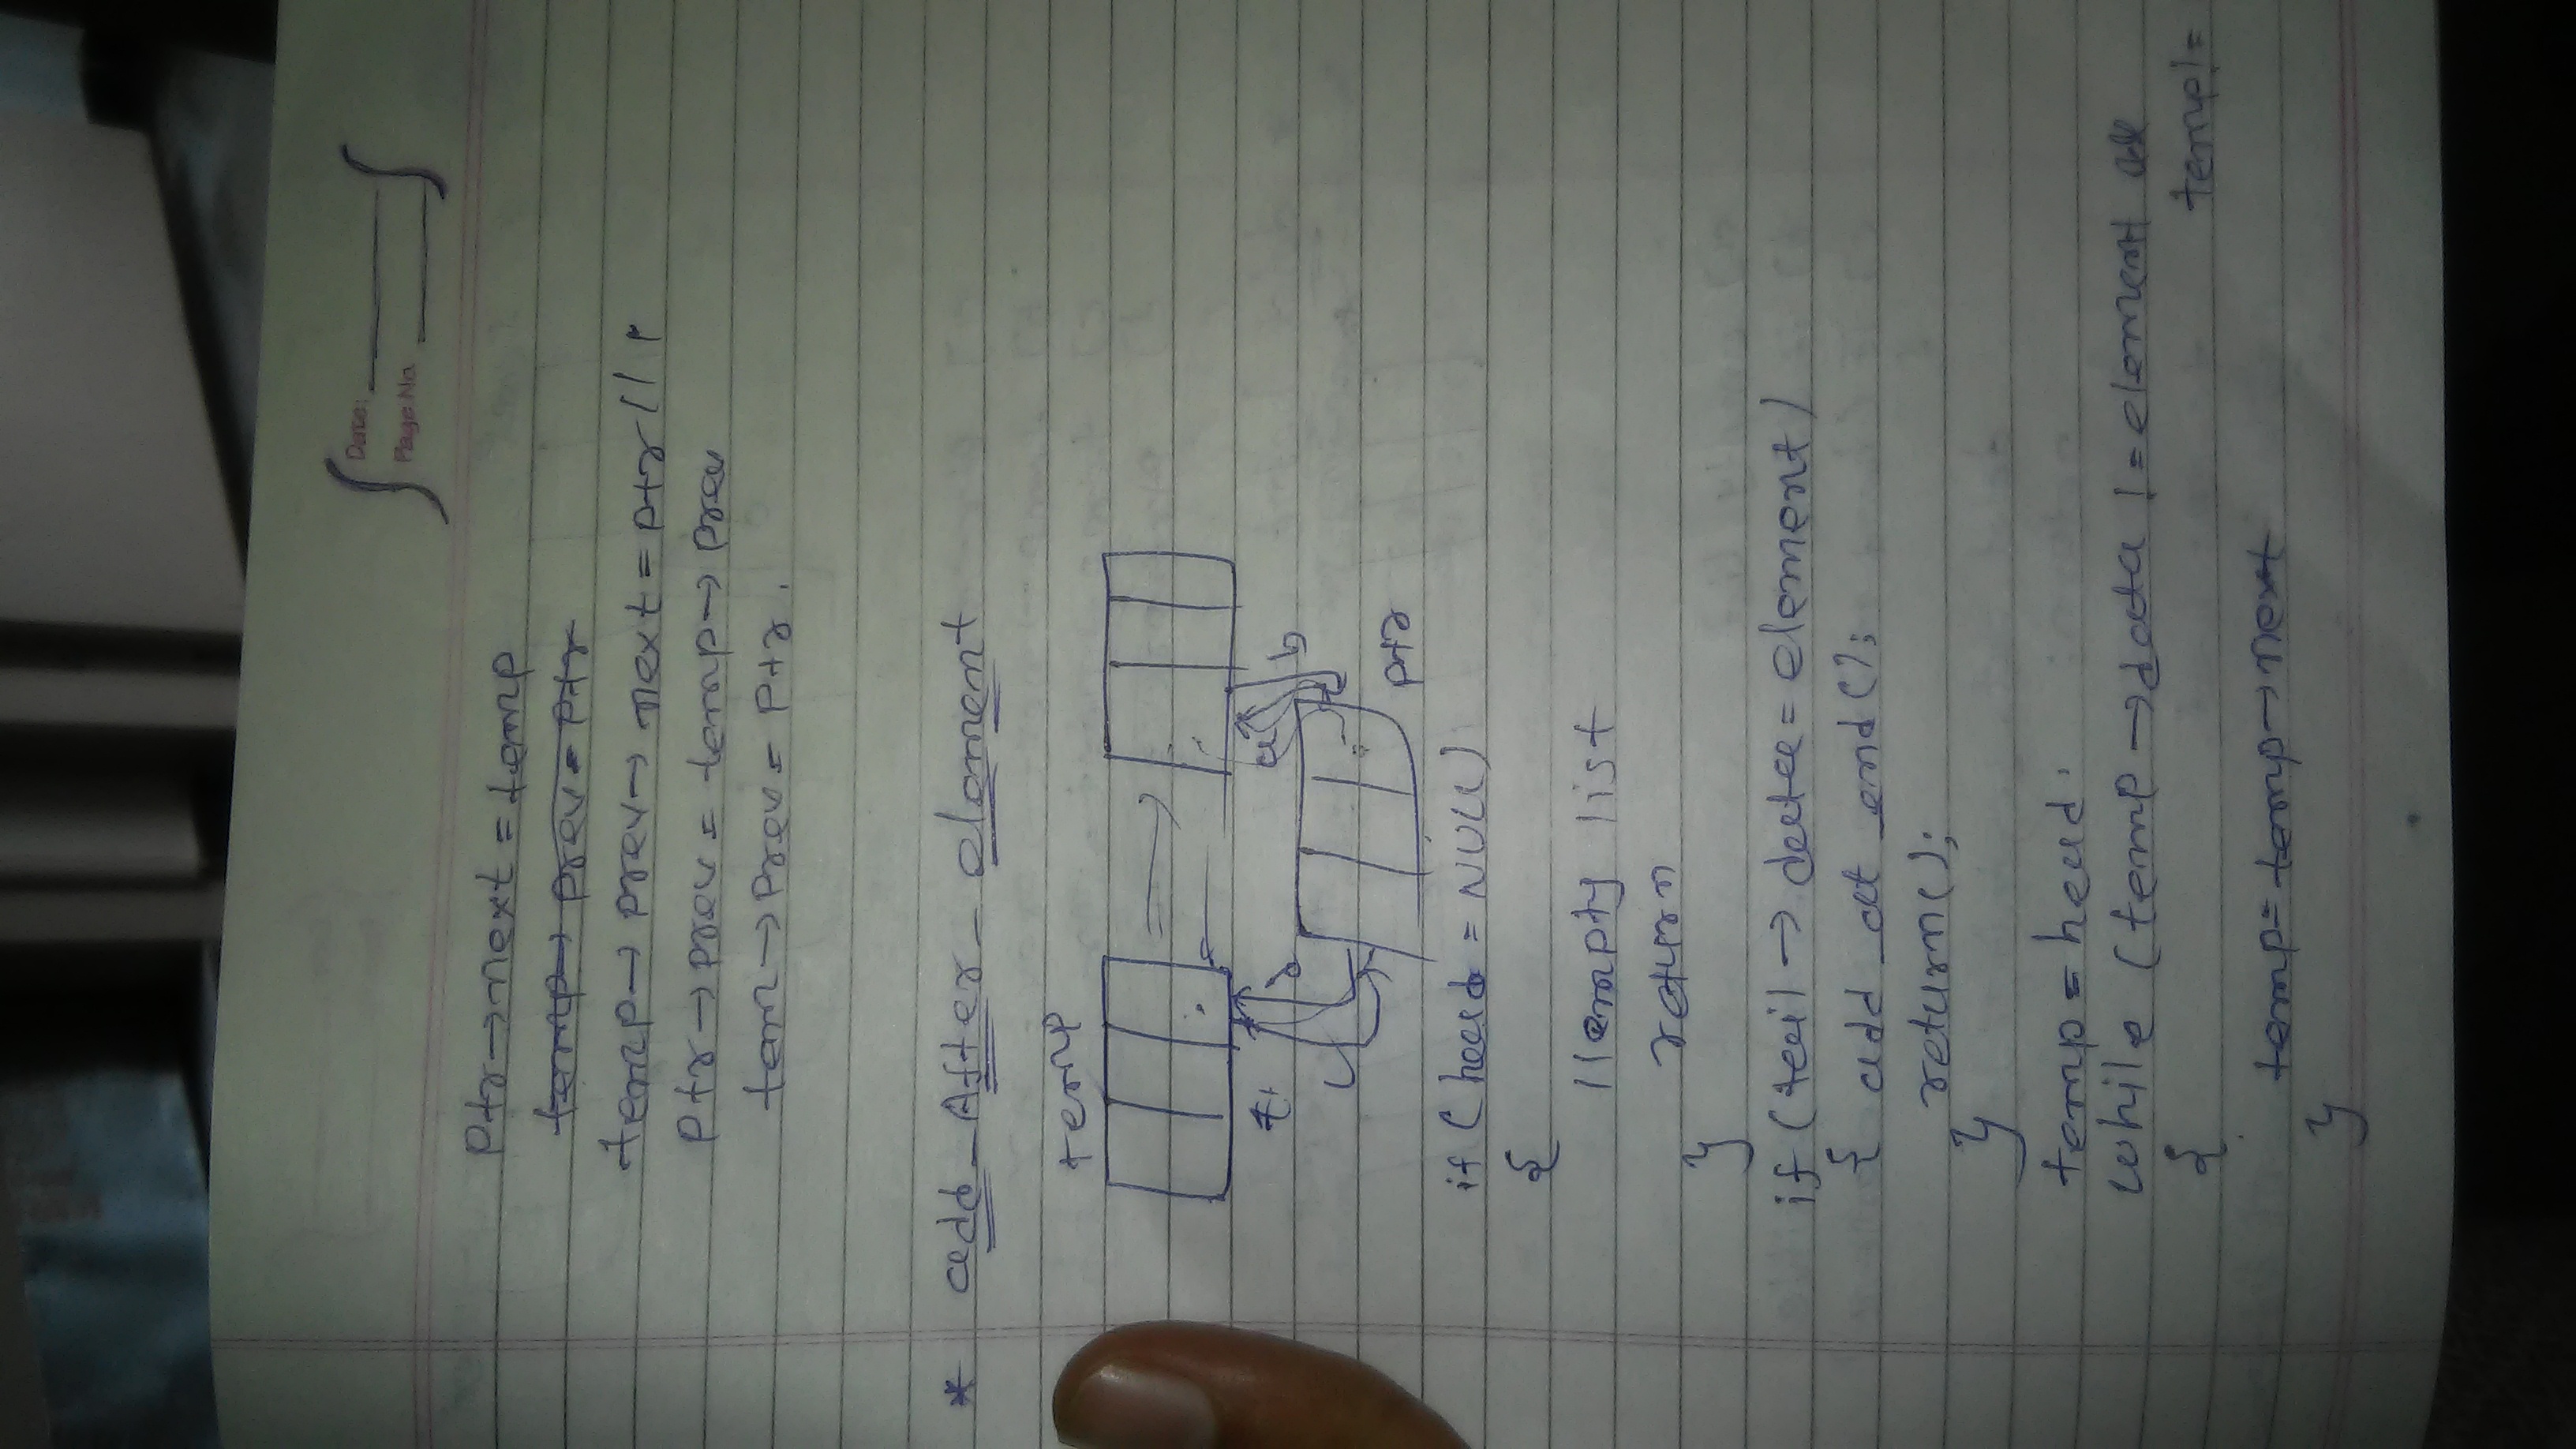 Date:
Page No.
ptr→next = temp
temp→ prev = ptr
temp→ prev→ next = ptr //
ptr→prev = temp→ prev
tem→prev = ptr.
* add_After_element
temp
a
b
d
ptr
if (head = NULL)
{
//empty list
return
}
if (tail → data = element)
{ add_at_end();
return();
}
temp = head.
while (temp →data != element &&
{ temp! =
temp = temp→next
}